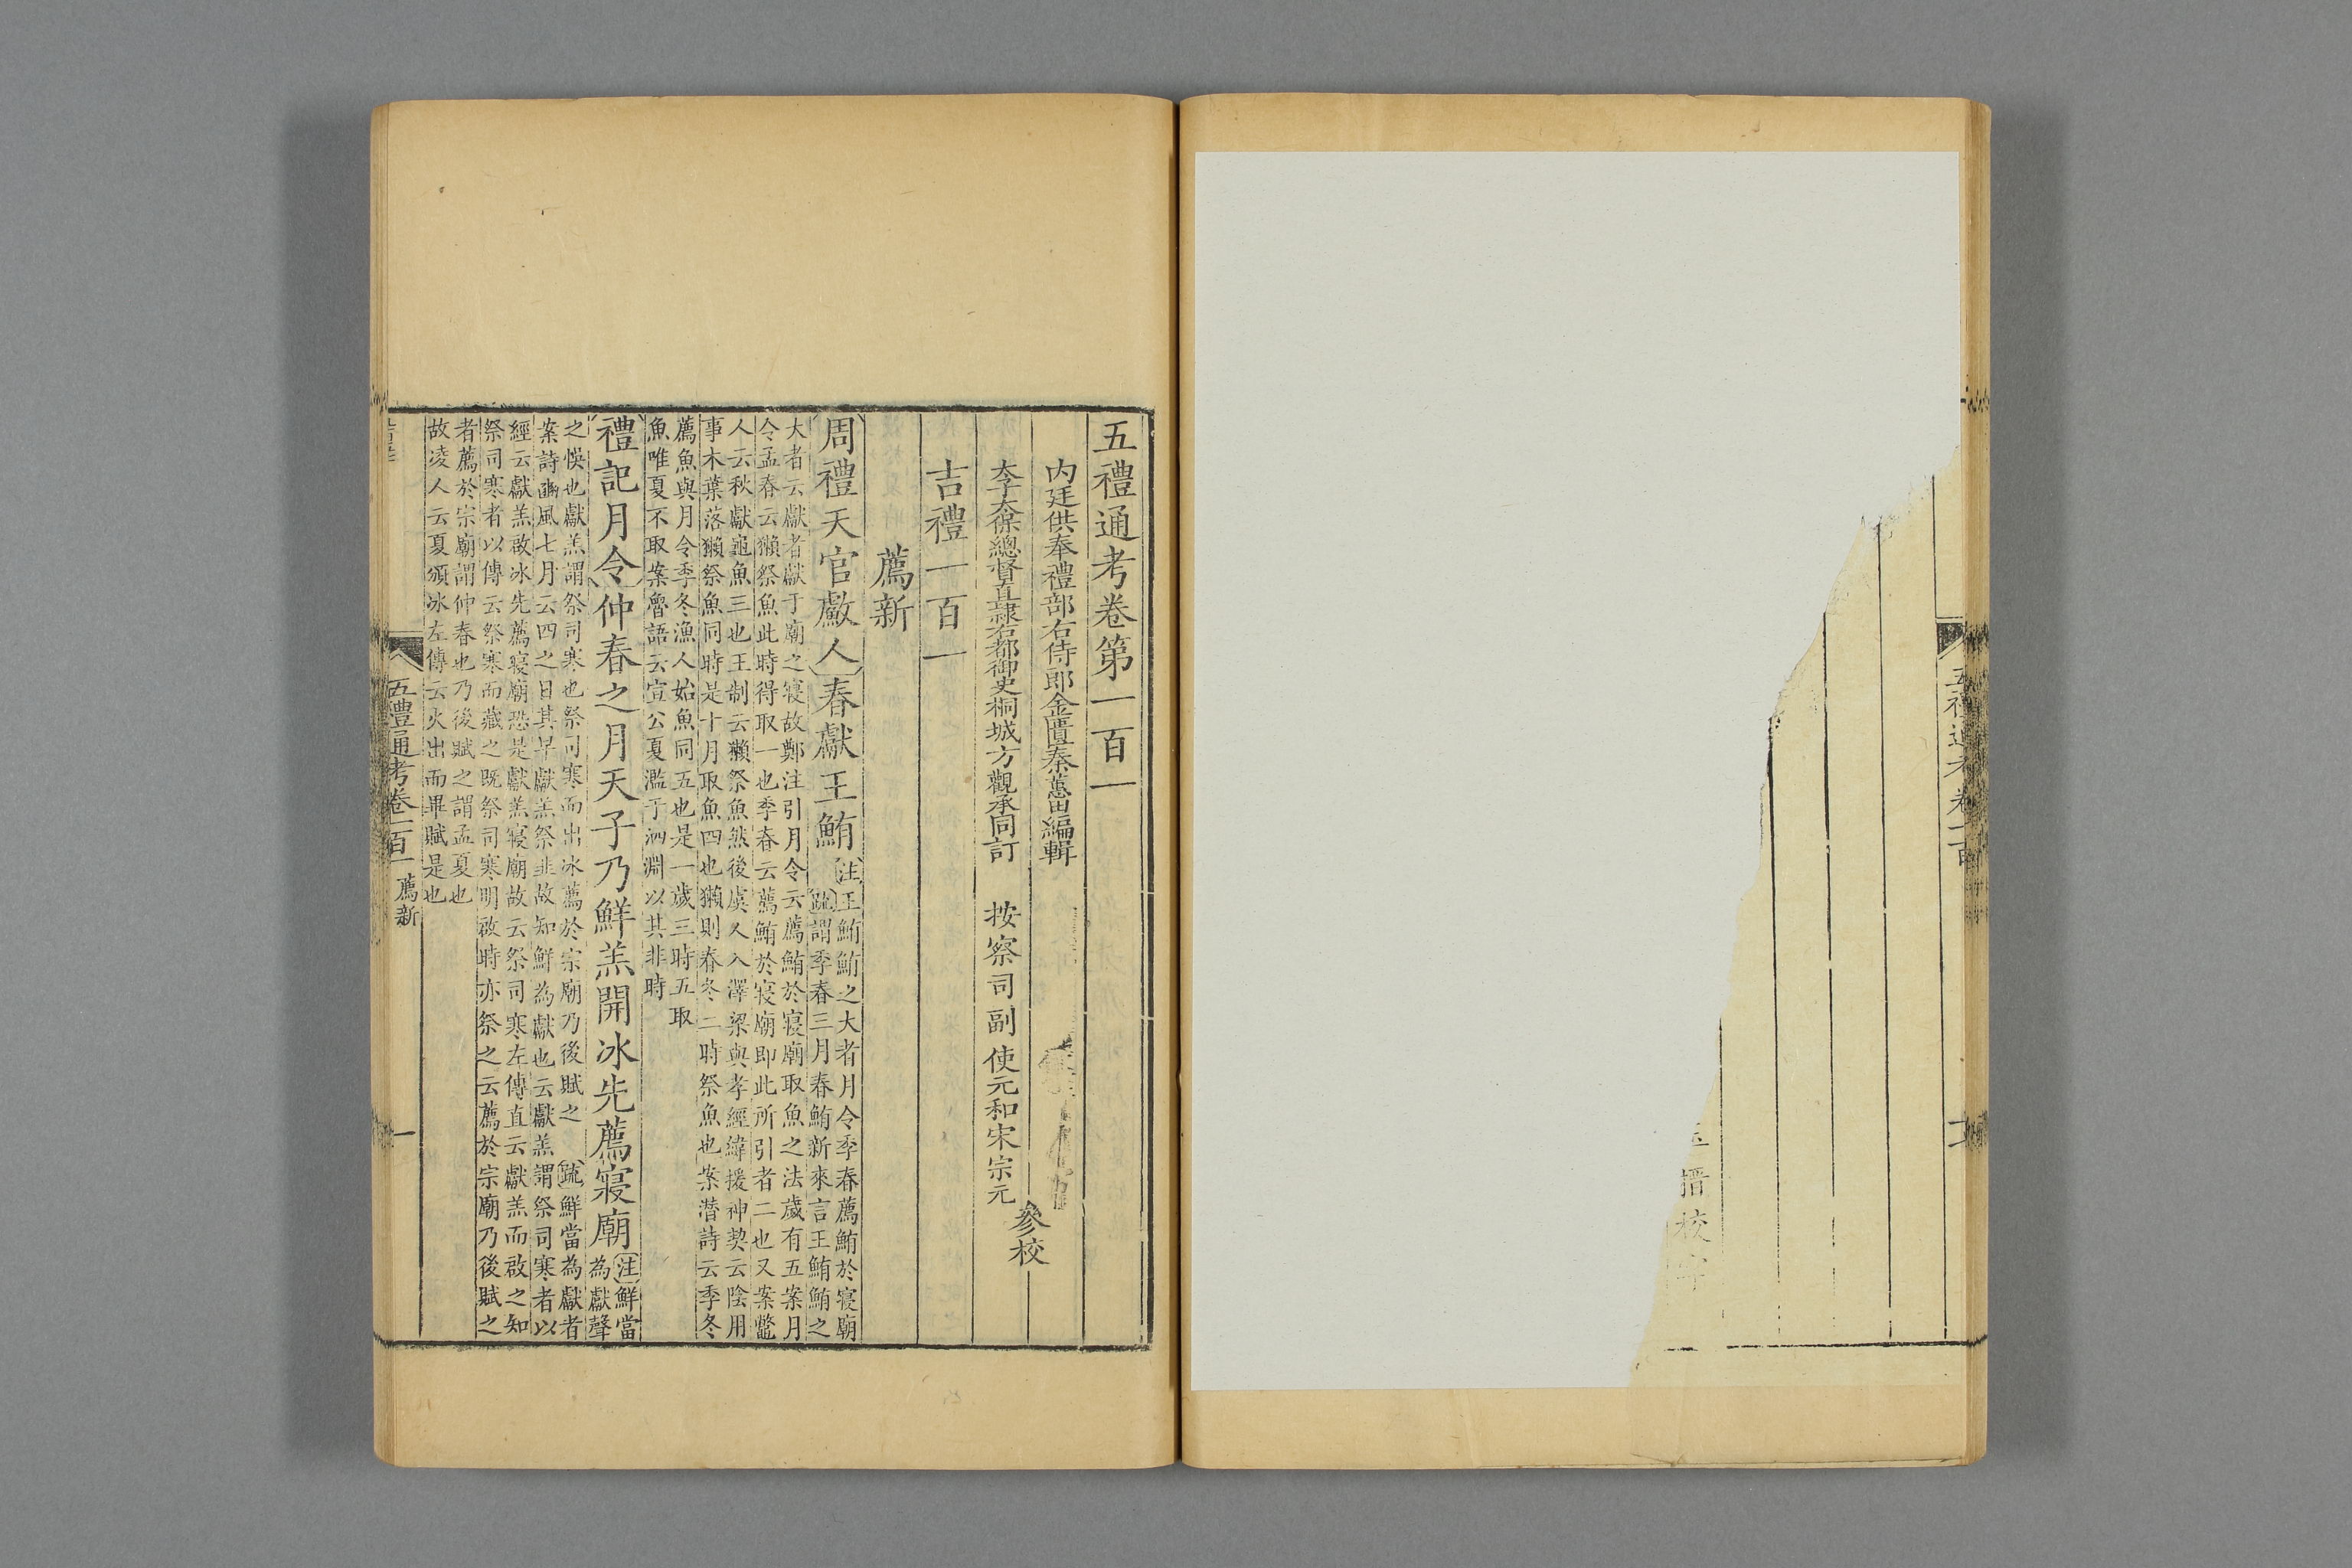 五禮通考卷一百
搢校字
五禮通考卷第一百一
内廷供奉禮部右侍郎金匱秦蕙田編輯
太子太保總督直隷右都御史桐城方觀承同訂 按察司副使元和宋宗元
參校
吉禮一百一
薦新
周禮天官䱷人春獻王鮪注王鮪鮪之大者月令季春薦鮪於寢廟
疏謂季春三月春鮪新來言王鮪鮪之
大者云獻者獻于廟之寢故鄭注引月令云薦鮪於寢廟取魚之法歲有五案月
令孟春云獺祭魚此時得取一也季春云薦鮪於寢廟即此所引者二也又案鼈
人云秋獻龜魚三也王制云獺祭魚然後虞人入澤梁與孝經緯援神契云陰用
事木葉落獺祭魚同時是十月取魚四也獺則春冬二時祭魚也案潛詩云季冬
薦魚與月令季冬漁人始魚同五也是一歲三時五取
魚唯夏不取案魯語云宣公夏濫于泗淵以其非時
禮記月令仲春之月天子乃鮮羔開冰先薦寢廟注鮮當
為獻聲
之悞也獻羔謂祭司寒也祭司寒而出冰薦於宗廟乃後賦之 疏鮮當為獻者
案詩豳風七月云四之日其早獻羔祭韭故知鮮為獻也云獻羔謂祭司寒者以
經云獻羔啟冰先薦寢廟恐是獻羔寢廟故云祭司寒左傳直云獻羔而啟之知
祭司寒者以傳云祭寒而藏之既祭司寒明啟時亦祭之云薦於宗廟乃後賦之
者薦於宗廟謂仲春也乃後賦之謂孟夏也
故凌人云夏頒冰左傳云火出而畢賦是也
五禮通考卷一百一 薦新
一